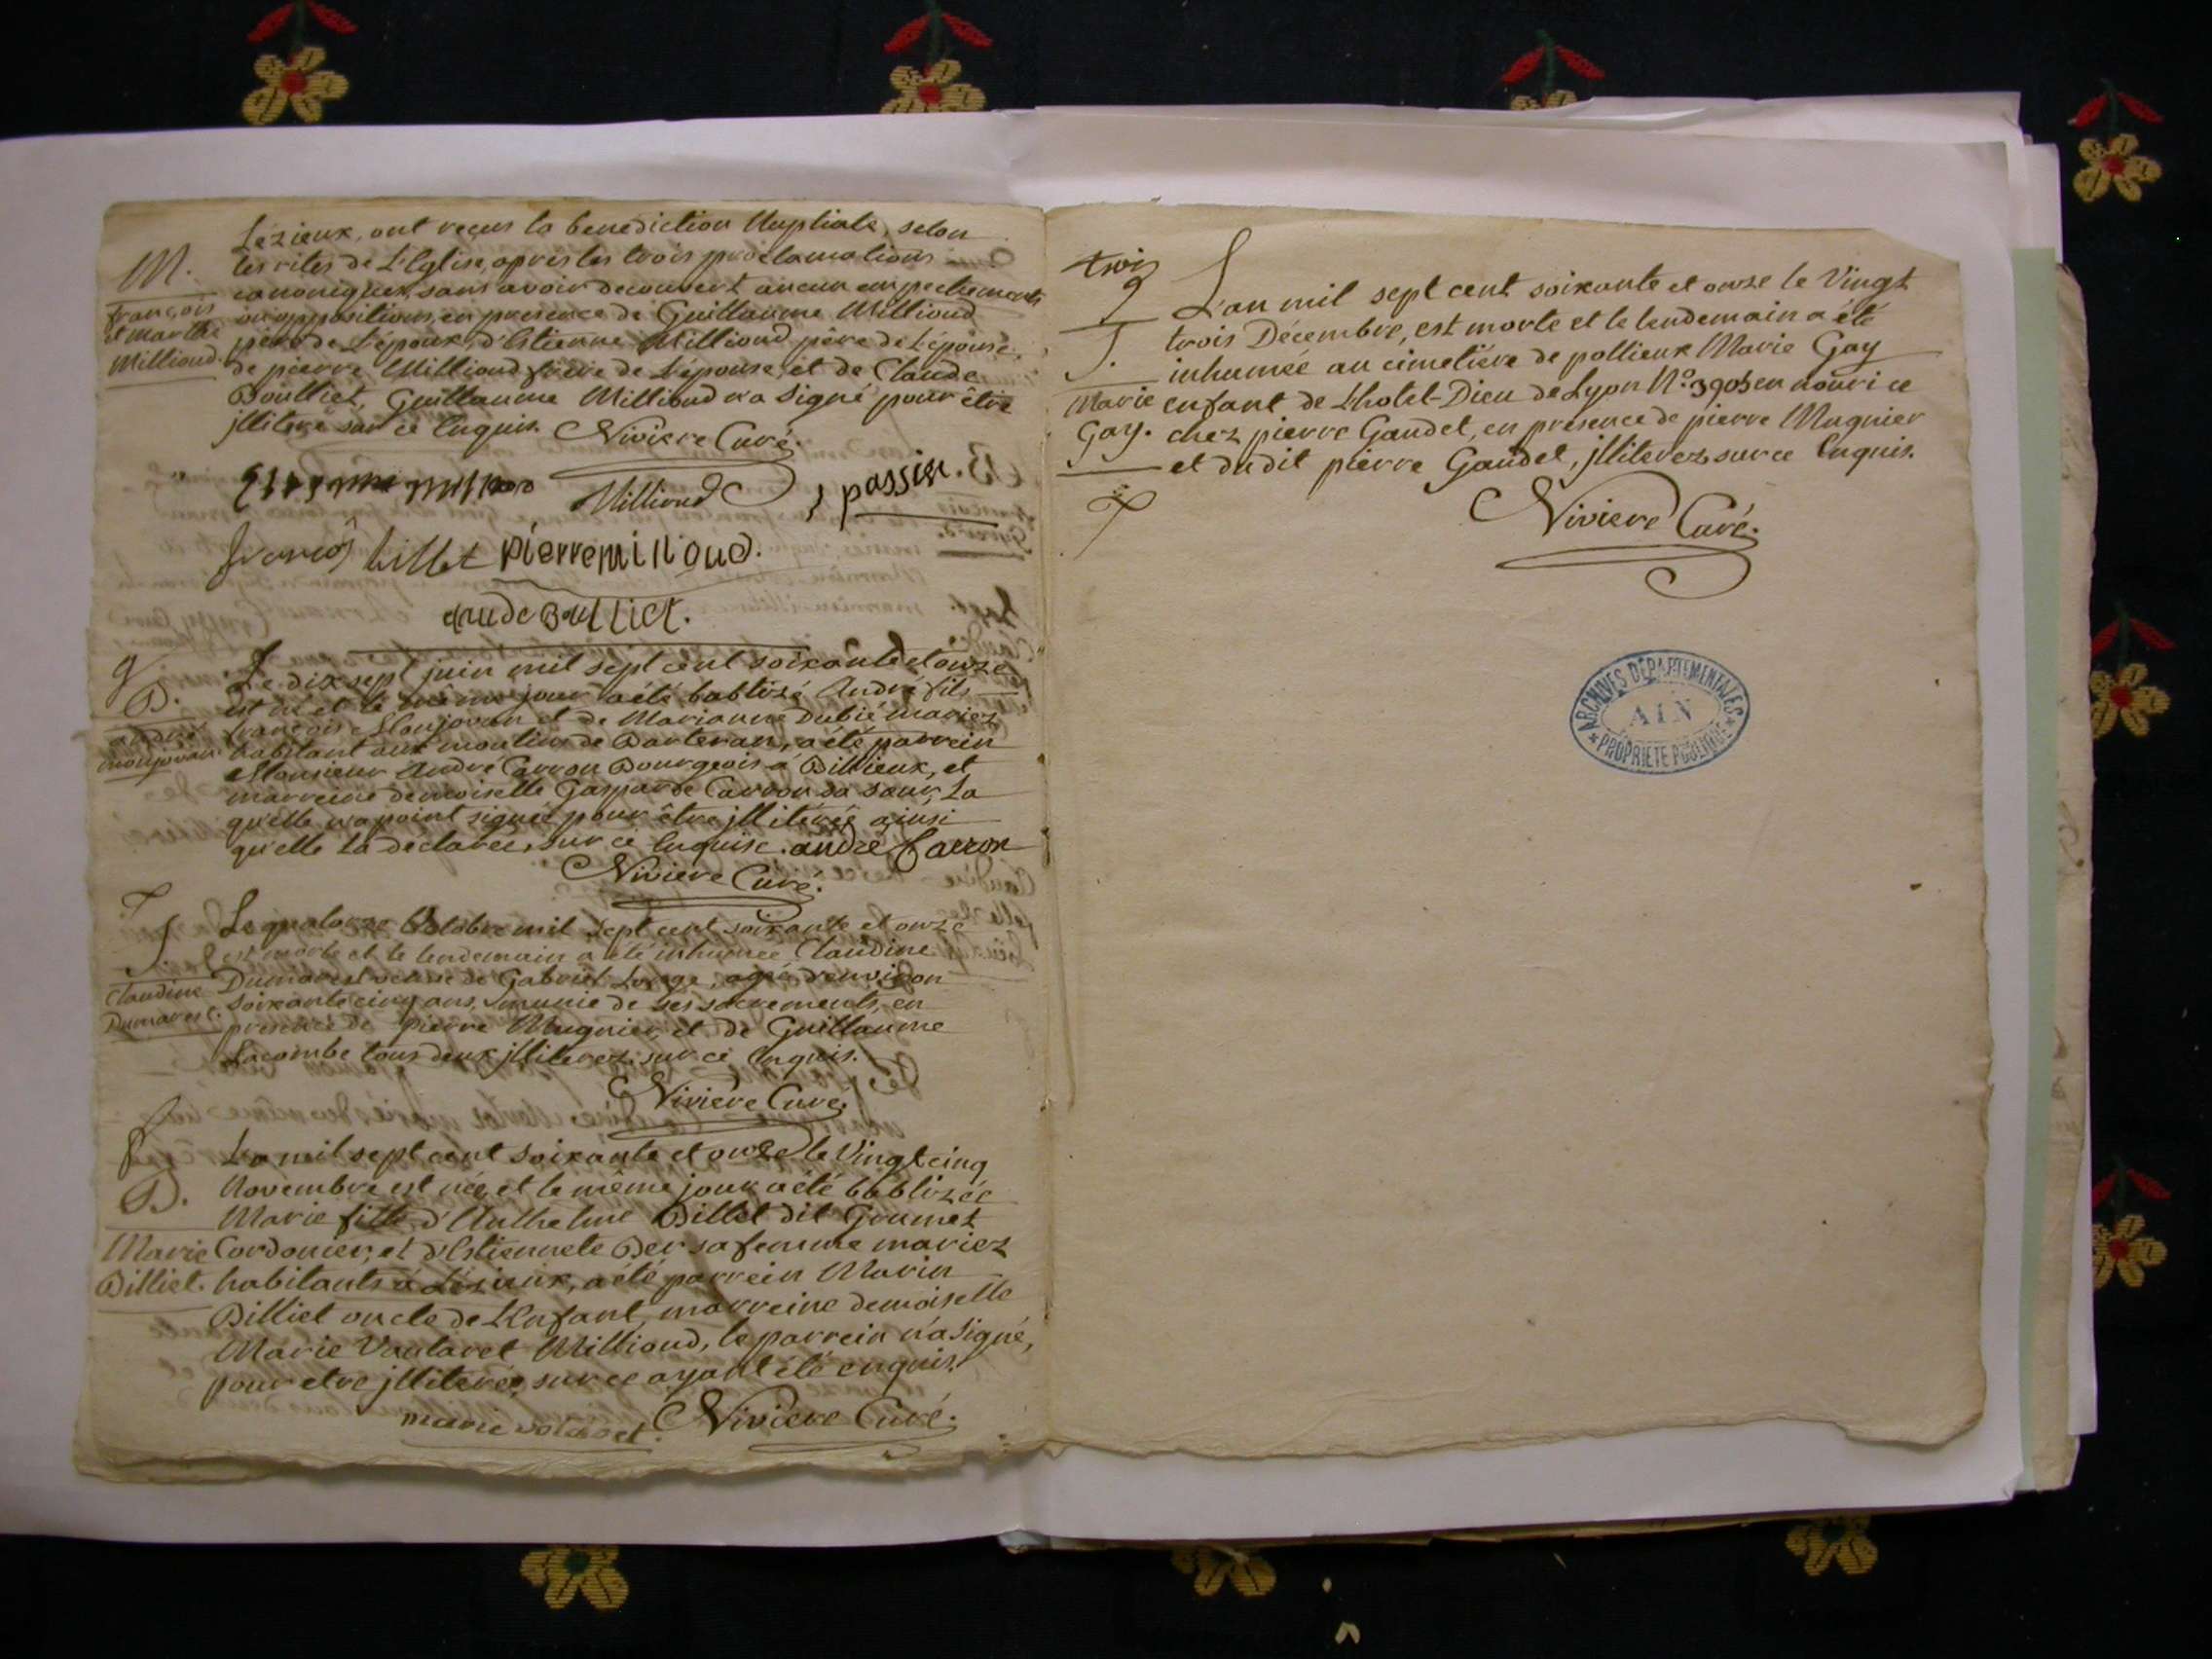 Lézieux, ont reçus la benediction Nuptiale, selon
les rites de L'Eglise, apres les trois proclamations
canoniques, sans avoir decouvert aucun empechements
ou oppositions, en presence de Guillaume Millioud
père de L'époux, d'Estienne Millioud père de L'épouse,
de pierre Millioud frère de L'épouse, et de Claude
Boulliet, Guillaume Millioud n'a signé pour être
jlliteré sur ce Enquis. Niviere Curé.
M.
françois
et Marthe
Millioud.
Millioud passin.
françois billet pierre millioud.
claude Boulliet.
Le dix sept juin mil sept cent soixante et onze
est né et le même jour a été babtizé André fils
françois Monjovan et de Marianne Dubié mariez
habitant aux moulins de Barteran, a été parrein
Monsieur André Carron Bourgeois à Billieux, et
marreine demoiselle Gasparde Carron sa sœur, La
qu'elle n'a point signéé pour être jlliterée ainsi
qu'elle La déclarée, sur ce Enquise. andré Carron
Niviere Curé.
9
B.
andré
monjovan
Le quatorze Octobre mil sept cent soixante et onze
est morte et le lendemain a été inhumée Claudine
Dumarest veuve de Gabriel Longe, agée d'environ
soixante cinq ans, munie de ses sacrements, en
presence de pierre Mugnier et de Guillaume
Lacombe tous deux jlliterez, sur ce Enquis.
Niviere Curé.
7
S.
Claudine
Dumarest.
La mil sept cent soixante et onze le Vingt cinq
Novembre est née, et le même jour a été babtizée
Marie fille d'Anthelme Billiet dit Goumet
Cordonier, et d'Estiennete Ber sa femme mariez
habitants à Lézieux, a été parrein Marin
Billiet oncle de L'Enfant, marreine demoiselle
Marie Vautaret Millioud, le parrein n'a signé,
pour etre jlliteré, sur ce ayant été enquis.
marie volaret. Niviere Curé.
B.
Marie
Billiet.
trois
9
S.
Marie
Gay.
L'an mil sept cent soixante et onze le Vingt
trois Décembre, est morte et le lendemain a été
inhumée au cimetiére de pollieux Marie Gay
enfant de L'hotel-Dieu de Lyon N.º 3903 en nouri ce
chez pierre Gaudet, en presence de pierre Mugnier
et dudit pierre Gaudet, jlliterez sur ce Enquis.
Niviere Curé.
ARCHIVES DÉPARTEMENTALES
AIN
* PROPRIÉTÉ PUBLIQUE *